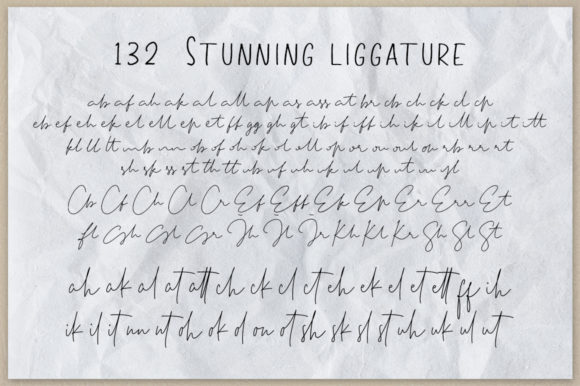 132 STUNNING LIGGATURE
ab af ah ak al all ap as ass at br cb ch ck cl cp
eb ef eh ek el ell ep et ff gg gh gt ib if iff ih ik il ill ip it itt
kl ll lt mb nn ob of oh ok ol oll op or ou oul ow rb rr rt
sh sk ss st th tt ub uf uh uk ul up ut un yl
Cb Cf Ch Cl Cr Ef Eff Ek Ep Er Err Et
fl Gh Gl Gr Jh Jl Jr Kh Kl Kr Sh Sl St
ah ak al at att ch ck cl ct eh ek el et ett ff ih
ik il it nn nt oh ok ol on ot sh sk sl st uh uk ul ut